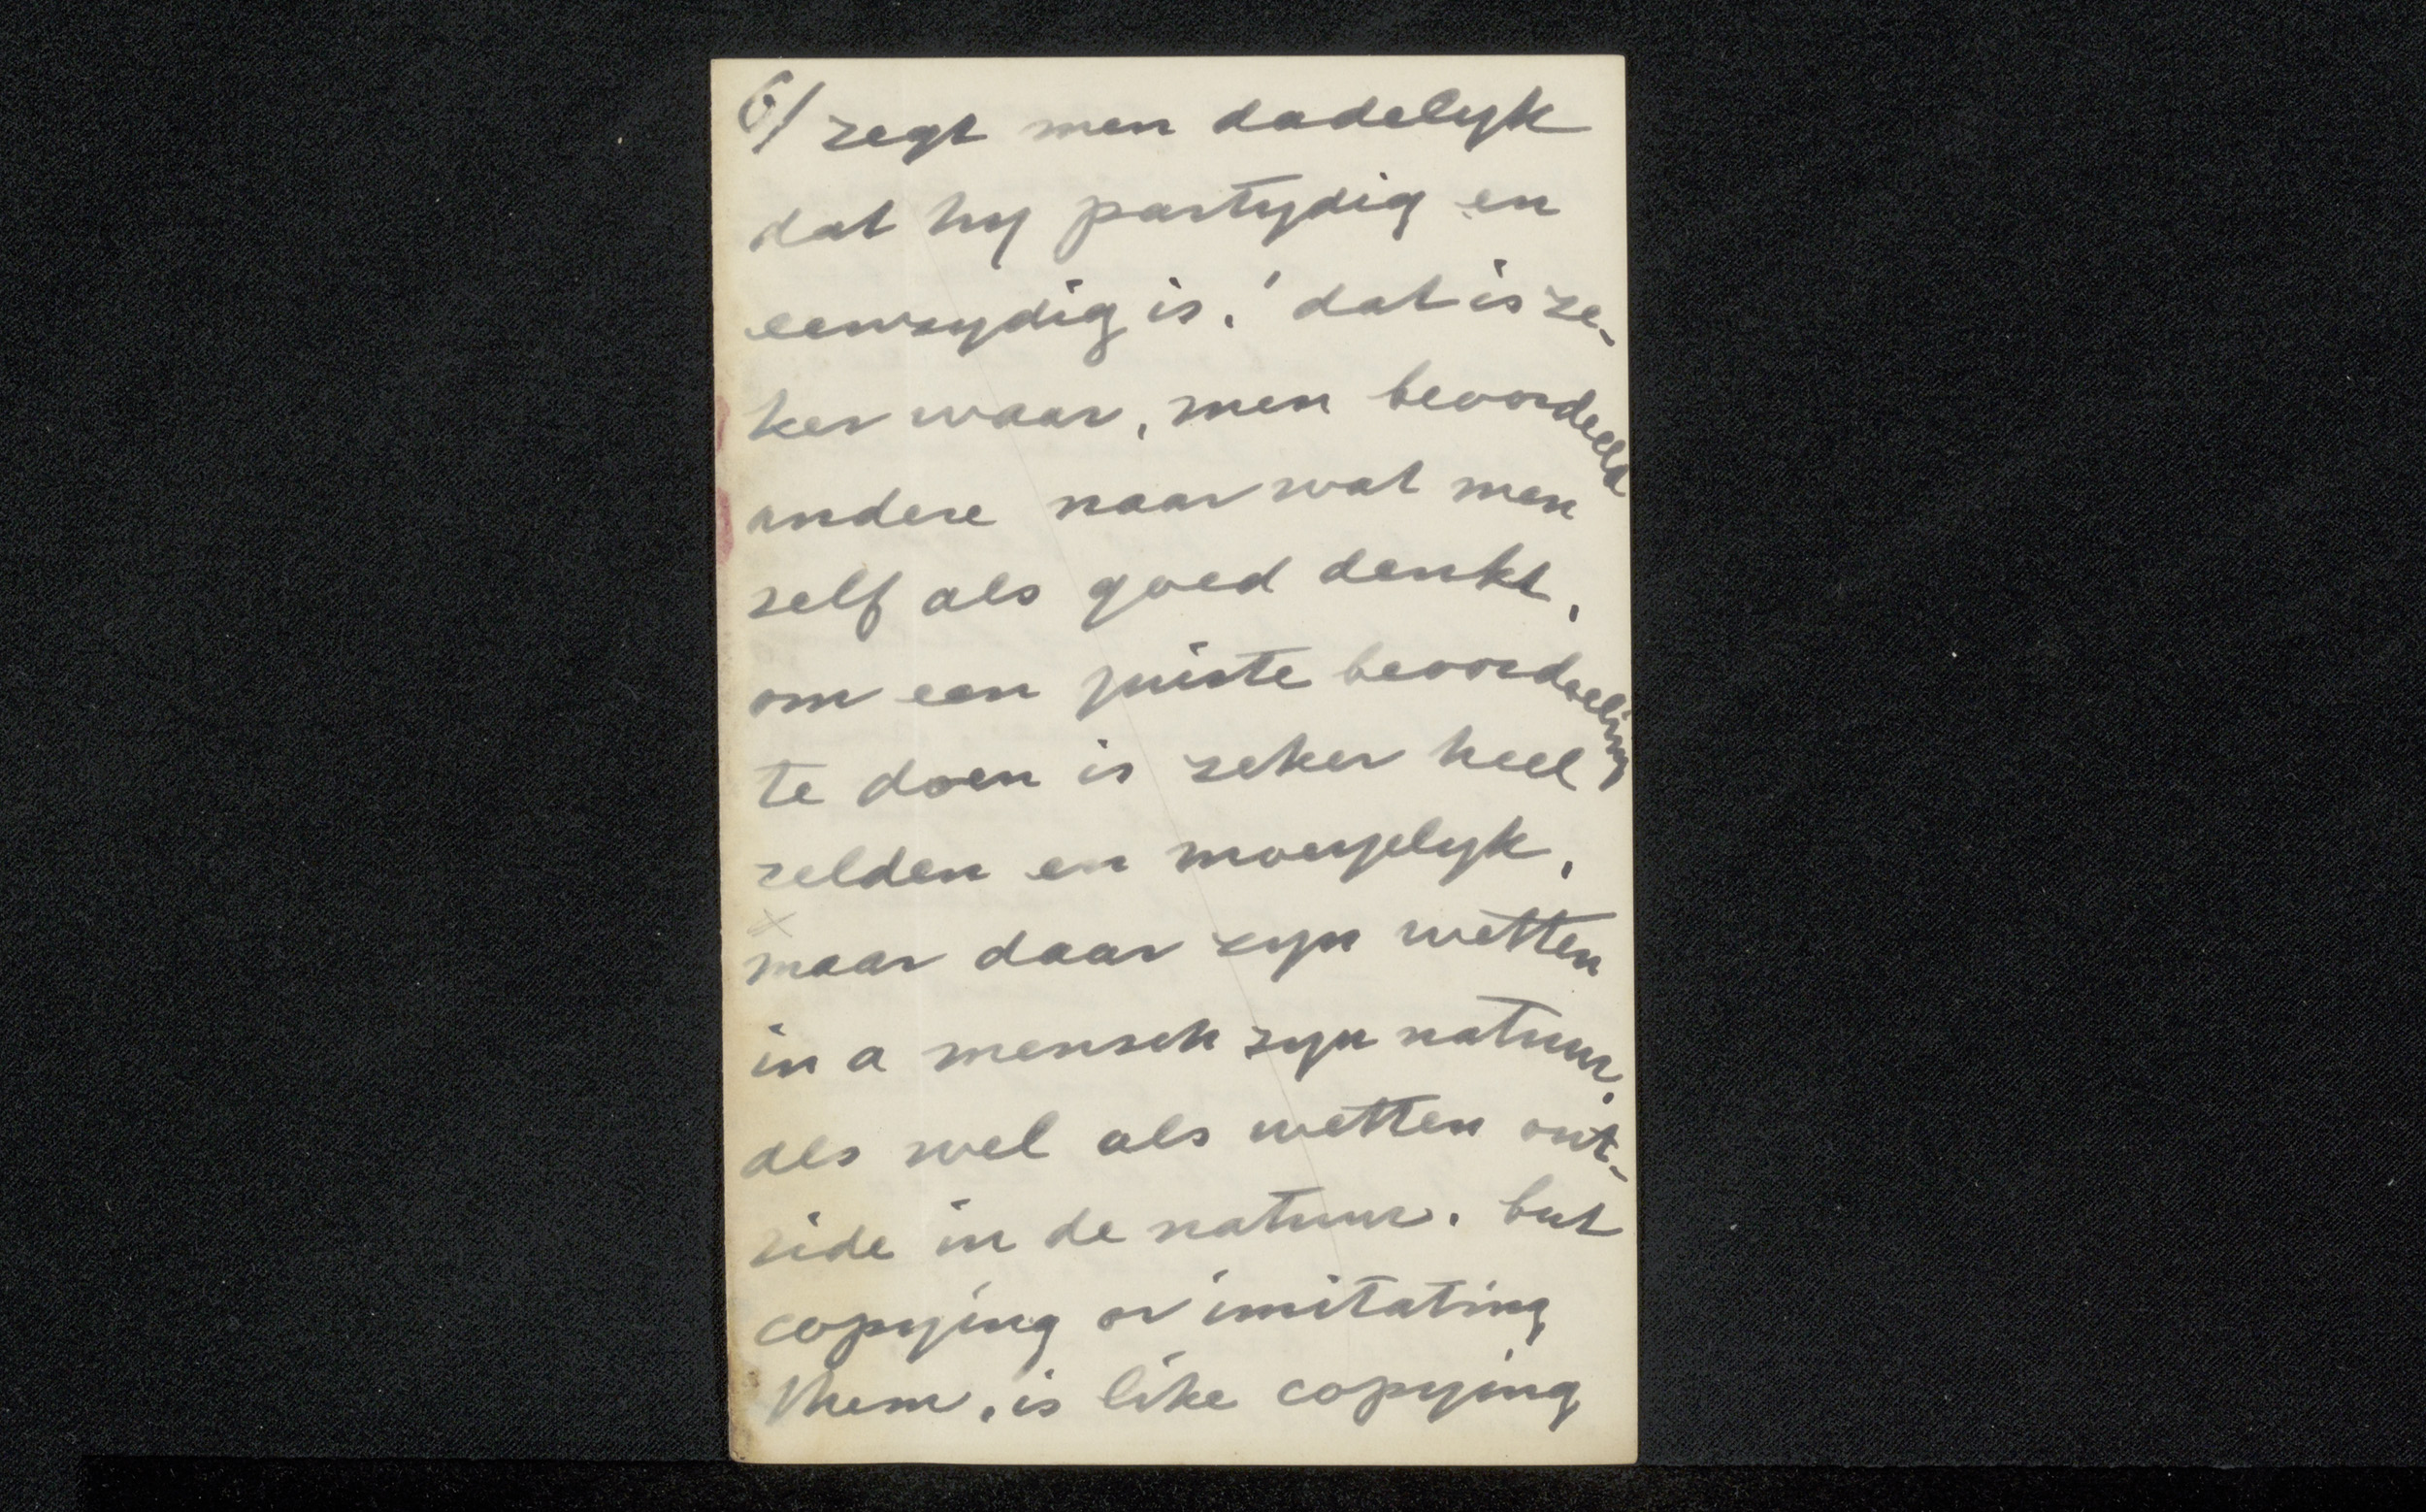 6/ zegt men dadelyk
dat hy partydig en
eenzydig is.' dat is ze-
ker waar, men beoordeeld
andere naar wat men
self als goed denkt,
om een juiste beoordeeling
te doen is zeker heel
zelden en moeyelyk,
maar daar zyn wetten
in a mensch zyn natuur,
als wel als wetten out-
side in de natuur. but
copying or imitating
them, is like copying